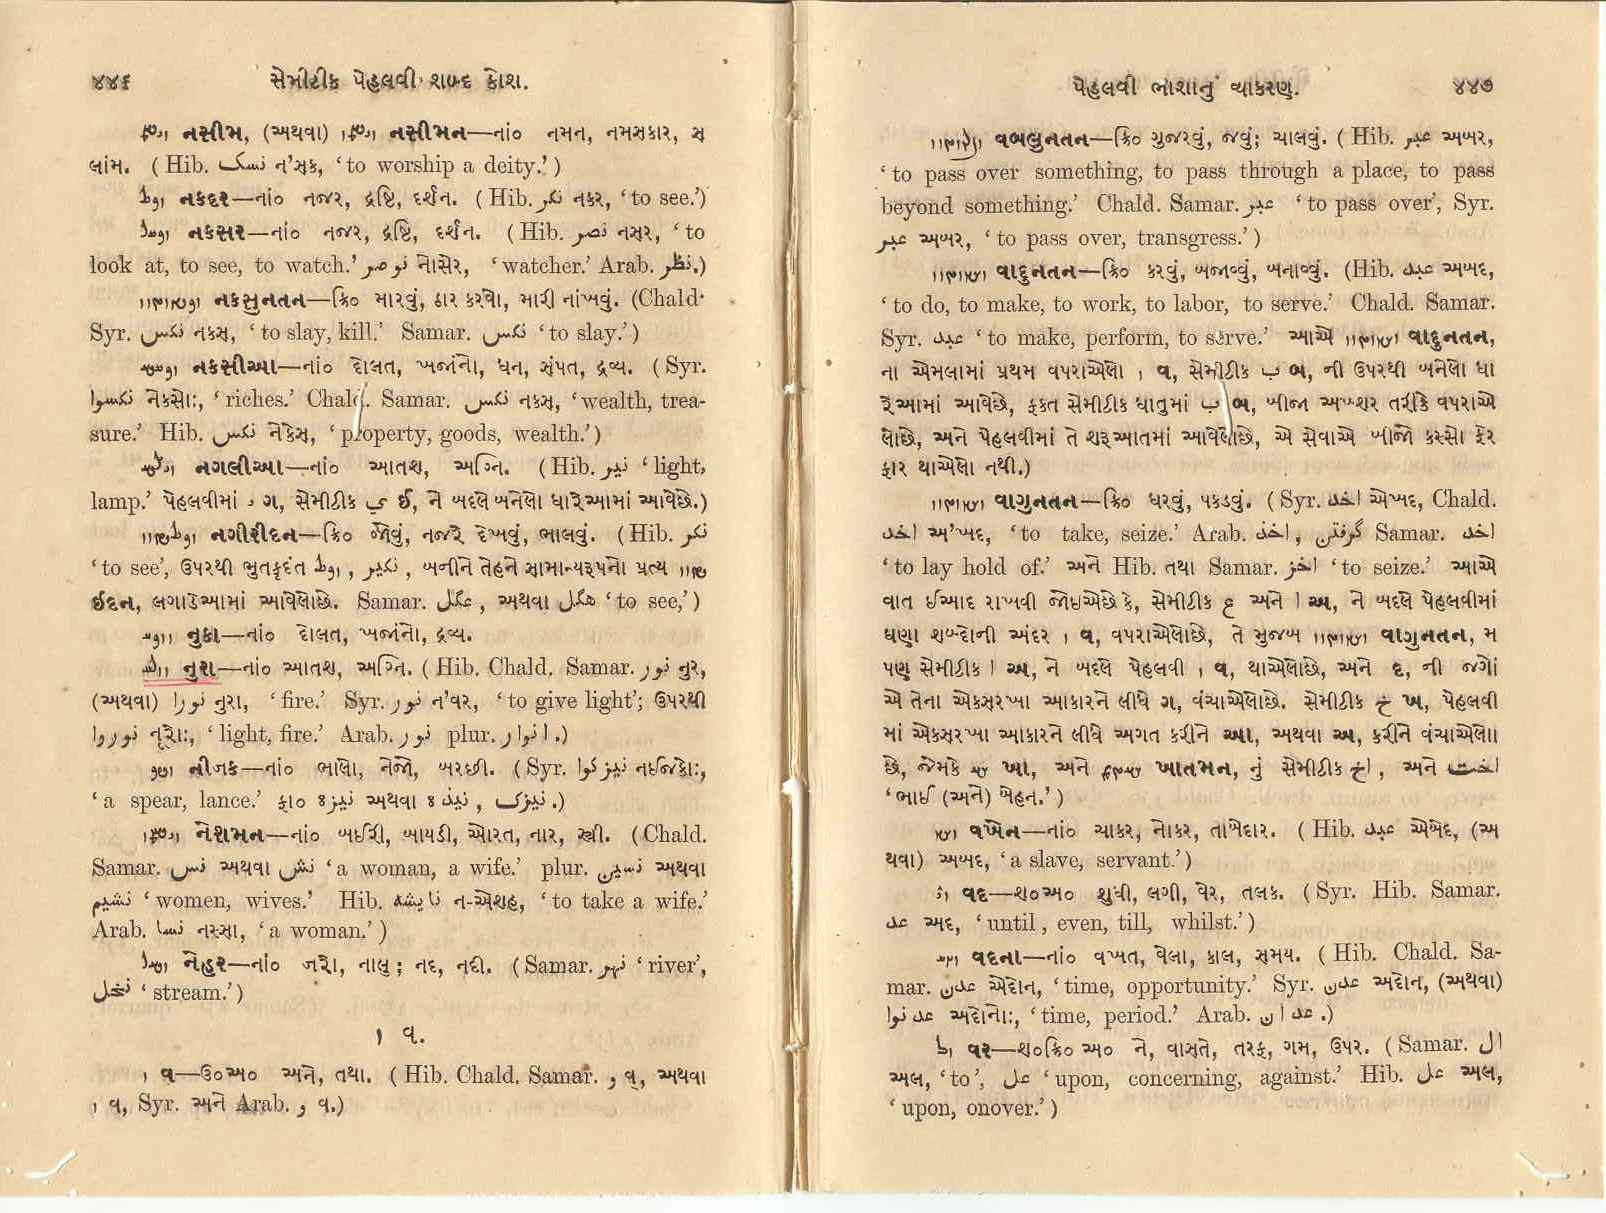 ૪૪૬ સેમીટીક પેહલવી શબ્દ કોશ.
નસીમ, (અથવા) નસીમન—નાં૦ નમન, નમસકાર, સ
લાંમ. (Hib. نسک ન'સક, ‘to worship a deity.’)
નકદર—નાં૦ નજર, દ્રષ્ટિ, દર્શન. (Hib. نکر નકર, ‘to see.’)
નકસર—નાં૦ નજર, દ્રષ્ટિ, દર્શન. (Hib. نصر નસર, ‘to
look at, to see, to watch.’ نوصر નોસેર, ‘watcher.’ Arab. نظر.)
નકસુનતન—ક્રિ૦ મારવું, ઠાર કરવો, મારી નાંખવું. (Chald.
Syr. نکس નકસ, ‘to slay, kill.’ Samar. نکس ‘to slay.’)
નકસીઆ—નાં૦ દોલત, ખજાંનો, ધન, સંપત, દ્રવ્ય. (Syr.
نکسوا નેકસોઃ, ‘riches.’ Chald. Samar. نکس નકસ, ‘wealth, trea-
sure.’ Hib. نکس નેકેસ, ‘property, goods, wealth.’)
નગલીઆ—નાં૦ આતશ, અગ્નિ. (Hib. نیر ‘light,
lamp.’ પેહલવીમાં ગ, સેમીટીક ي ઈ, ને બદલે બનેલો ધારેઆમાં આવેછે.)
નગીરીદન—ક્રિ૦ જોવું, નજરે દેખવું, ભાલવું. (Hib. نکر
‘to see’, ઉપરથી ભુતકૃદંત , نکیر, બનીને તેહને સામાન્યરૂપનો પ્રત્ય
ઈદન, લગાડેઆમાં આવેલોછે. Samar. عگل, અથવા هگل ‘to see,’)
નુકા—નાં૦ દોલત, ખજાંનો, દ્રવ્ય.
નુરા—નાં૦ આતશ, અગ્નિ. (Hib. Chald. Samar. نور નુર,
(અથવા) نورا નુરા, ‘fire.’ Syr. نور ન'વર, ‘to give light’; ઉપરથી
نوروا નૂરોઃ, ‘light, fire.’ Arab. نور plur. انوار.)
નીજક—નાં૦ ભાલો, નેજો, બરછી. (Syr. نیزکوا નઇજિકોઃ,
‘a spear, lance.’ ફા૦ نیزه અથવા نیذه, نیزک.)
નેશમન—નાં૦ બઈરી, બાયડી, ઓરત, નાર, સ્ત્રી. (Chald.
Samar. نس અથવા نش ‘a woman, a wife.’ plur. نسین અથવા
نشیم ‘women, wives.’ Hib. نایشه ન-એશહ, ‘to take a wife.’
Arab. نسا નસ્સા, ‘a woman.’)
નેહર—નાં૦ જરો, નાલુ; નદ, નદી. (Samar. نهر ‘river’,
نخل ‘stream.’)
વ.
વ—ઉ૦અ૦ અને, તથા. (Hib. Chald. Samar. و વ, અથવા
વ, Syr. અને Arab. و વ.)
પેહલવી ભાશાનું વ્યાકરણ. ૪૪૭
વબલુનતન—ક્રિ૦ ગુજરવું, જવું; ચાલવું. (Hib. عبر અબર,
‘to pass over something, to pass through a place, to pass
beyond something.’ Chald. Samar. عبر ‘to pass over’, Syr.
عبر અબર, ‘to pass over, transgress.’)
વાદુનતન—ક્રિ૦ કરવું, બજાવ્વું, બનાવ્વું. (Hib. عبد અબદ,
‘to do, to make, to work, to labor, to serve.’ Chald. Samar.
Syr. عبد ‘to make, perform, to serve.’ આએ વાદુનતન,
ના એમલામાં પ્રથમ વપરાએલો વ, સેમીટીક ب બ, ની ઉપરથી બનેલો ધા
રેઆમાં આવેછે, ફકત સેમીટીક ધાતુમાં ب બ, બીજા અખ્શર તરીકે વપરાએ
લોછે, અને પેહલવીમાં તે શરૂઆતમાં આવેલોછે, એ સેવાએ બીજો કસ્સો ફેર
ફાર થાએલો નથી.)
વાગુનતન—ક્રિ૦ ધરવું, પકડવું. (Syr. اخد એખદ, Chald.
اخد અ'ખદ, ‘to take, seize.’ Arab. اخذ, گرفتن Samar. اخد
‘to lay hold of.’ અને Hib. તથા Samar. اخز ‘to seize.’ આએ
વાત ઈઆદ રાખવી જોઇએછે કે, સેમીટીક ع અને ا અ, ને બદલે પેહલવીમાં
ઘણા શબ્દોની અંદર વ, વપરાએલોછે, તે મુજબ વાગુનતન, મ
પણ સેમીટીક ا અ, ને બદલે પેહલવી વ, થાએલોછે, અને દ, ની જગો
એ તેના એકસરખા આકારને લીધે ગ, વંચાએલોછે. સેમીટીક خ ખ, પેહલવી
માં એકસરખા આકારને લીધે અગત કરીને આ, અથવા અ, કરીને વંચાએલો
છે, જેમકે ખા, અને ખાતમન, નું સેમીટીક اخ, અને اخت
‘ભાઈ (અને) બેહન.’)
વખેન—નાં૦ ચાકર, નોકર, તાબેદાર. (Hib. عبد એબેદ, (અ
થવા) અબદ, ‘a slave, servant.’)
વદ—શ૦અ૦ શુધી, લગી, વેર, તલક. (Syr. Hib. Samar.
عد અદ, ‘until, even, till, whilst.’)
વદના—નાં૦ વખત, વેલા, કાલ, સમય. (Hib. Chald. Sa-
mar. عدن એદોન, ‘time, opportunity.’ Syr. عدن અદોન, (અથવા)
عدنوا અદોનોઃ, ‘time, period.’ Arab. عدان.)
વર—શ૦ક્રિ૦ અ૦ ને, વાસતે, તરફ, ગમ, ઉપર. (Samar. ال
અલ, ‘to’, عل ‘upon, concerning, against.’ Hib. عل અલ,
‘upon, onover.’)